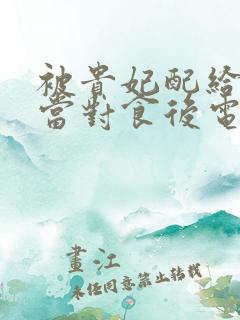 被貴妃配給
當對食後電
畫江
未经同意禁止转载